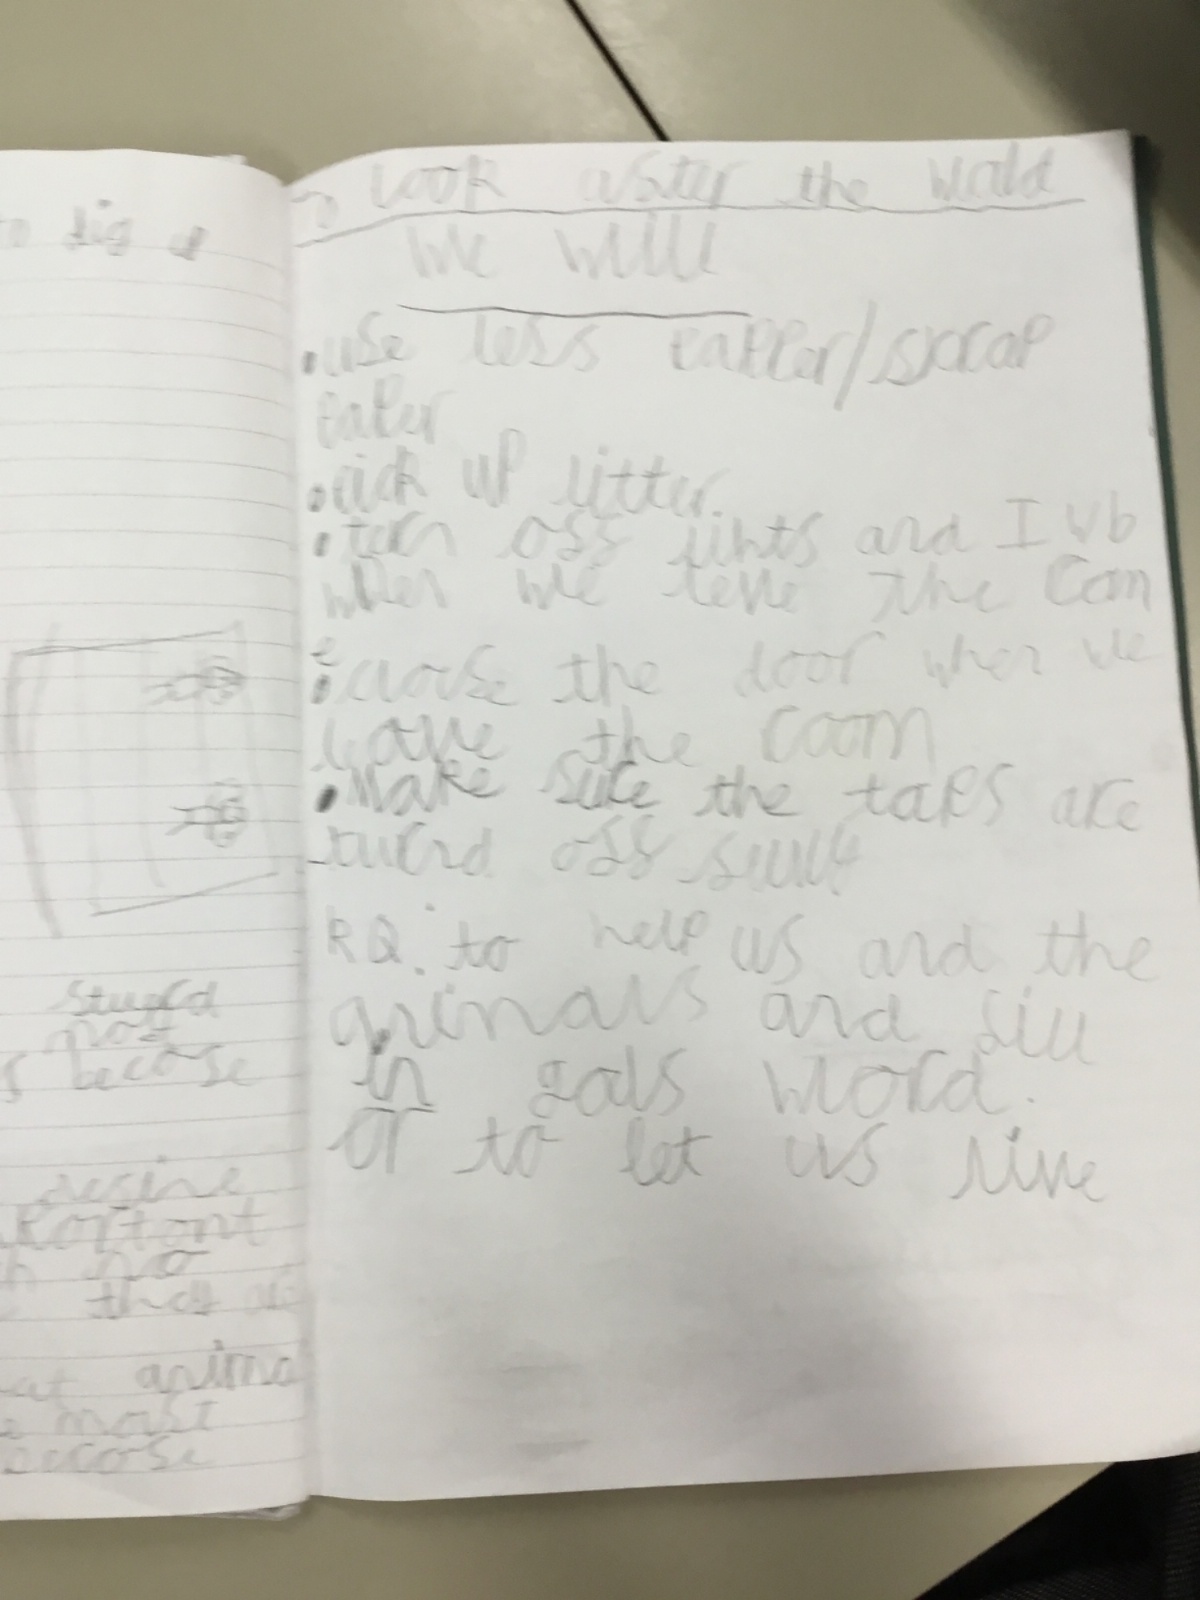 to dig u
Stuerd
not
s becose
desine
Portont
h no
they are
at anima
e most
becose
To look after the World
We will
• use less papper/scrap
paper
• pick up litter.
• tern off lihts and IWb
when we leve the room
• clouse the door when we
leave the room
• Make sure the taps are
tuerd off fully
RQ. to help us and the
animals and sill
in gods World.
or to let us live